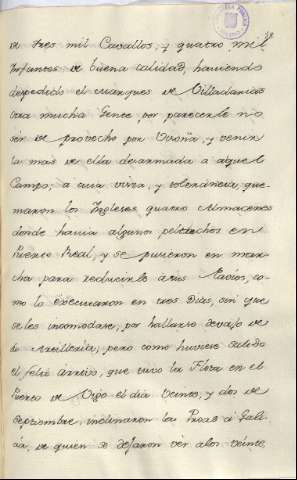 de tres mil Cavallos, y quatro mil
Infantes de buena calidad, haviendo
despedido el Marques de Villadarias
otra mucha Gente, por parecerle no
ser de provecho por Visoña, y venir
la mas de ella desarmada a aquel
Campo; a cuia vista, y tolerancia que-
maron los Ingleses quatro Almacenes
donde havia algunos peltrechos en
Puerto Real, y se pusieron en mar-
cha para reducirse a sus Navios, co-
mo lo executaron en tres Dias, sin que
se les incomodase, por hallarse devajo de
la Artilleria, pero como huviese savido
el feliz arrivo, que tuvo la Flota en el
Puerto de Vigo el dia veinte, y dos de
Septiembre, inclinaron la Proas à Gali-
cia, de quien se dejaron ver a los veinte